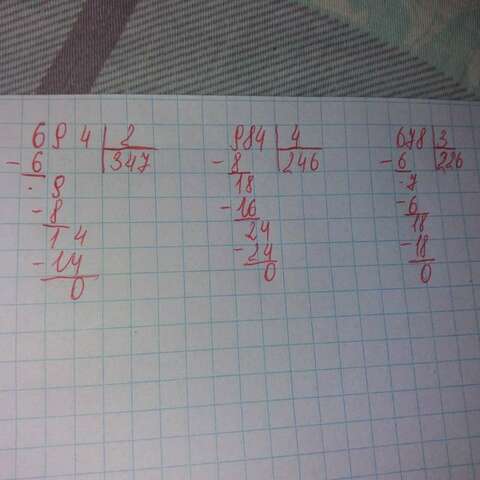 694 2
- 6 347
9
- 8
14
- 14
0
984 4
- 8 246
18
- 16
24
- 24
0
678 3
- 6 226
7
- 6
18
- 18
0